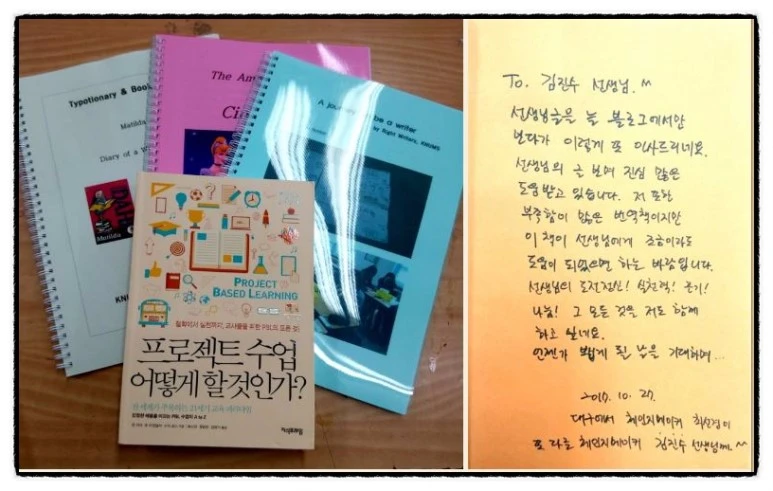 Typotionary & Book
Matilda
Diary of a W
Matilda
The Am
Cin
A journey
be a writer
by Right Writers, KNUMS
PROJECT
BASED LEARNING
철학에서 실천까지, 교사들을 위한 PBL의 모든 것!
프로젝트 수업
어떻게 할 것인가?
지식프레임
To. 김진수 선생님. ^^
선생님글을 늘 블로그에서만
보다가 이렇게 또 인사드리네요.
선생님의 글 보며 진심 많은
도움받고 있습니다. 저 또한
부족함이 많은 번역책이지만
이 책이 선생님에게 조금이라도
도움이 되었으면 하는 바람입니다.
선생님의 도전정신! 실천력! 끈기!
나눔! 그 모든 것을 저도 함께
하고 싶네요.
언젠가 뵙게 될 날을 기대하며...
10. 27.
대구에서 체인지메이커 최선경이
또 다른 체인지메이커 김진수 선생님께. ^^